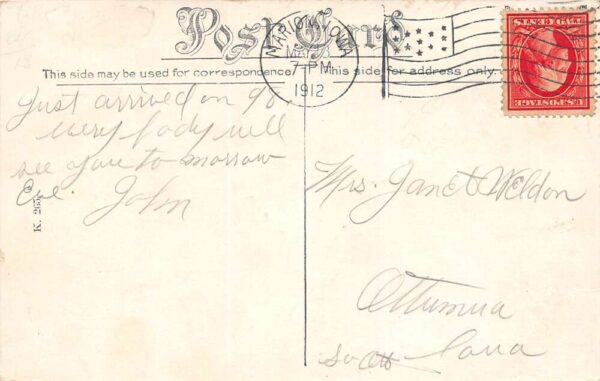 Post Card
MARION, IOWA
MAR
7-PM
1912
This side may be used for correspondence. This side for address only.
U.S. POSTAGE
TWO CENTS
Just arrived on 98.
every body well
see you to morrow
Eve. John
K. 265
Mrs. Janet Weldon
Ottumwa
So Ott Iowa